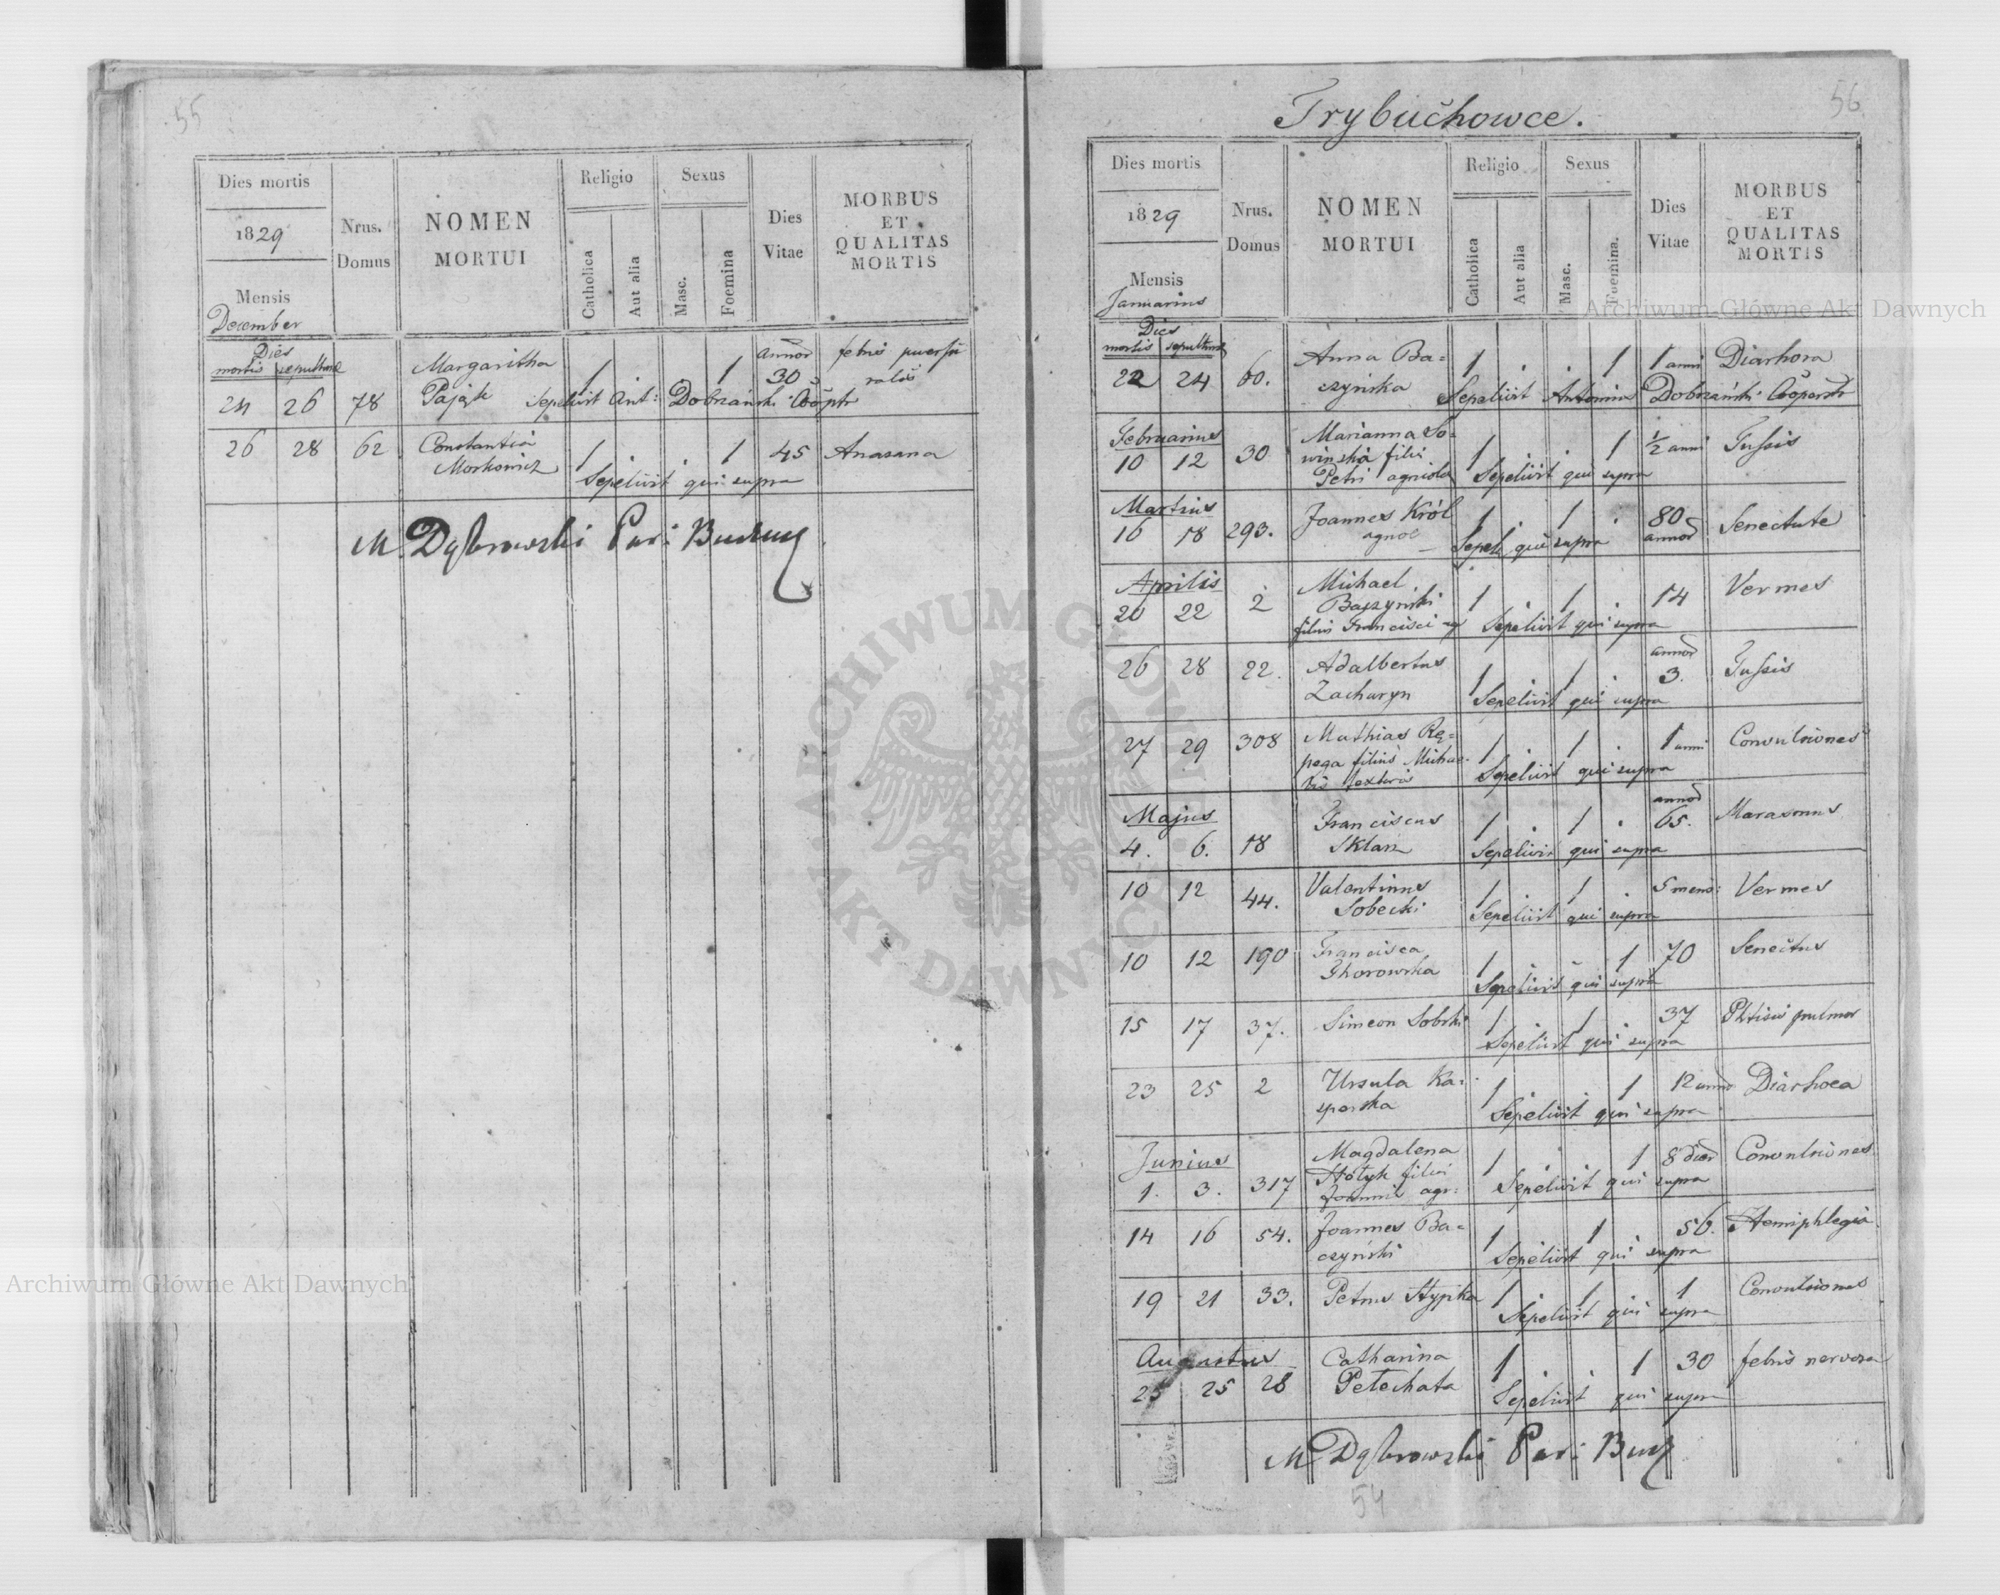 55
Dies mortis
1829
Mensis
December
Nrus.
Domus
NOMEN
MORTUI
Religio
Catholica
Aut alia
Sexus
Masc.
Foemina
Dies
Vitae
MORBUS
ET
QUALITAS
MORTIS
Dies
mortis sepulturae
24 26 78 Margaritha
Pająk 1 . . 1 annor 30 febris puerpe
ralis
Sepelivit Ant: Dobrzański Cooptr
26 28 62 Constantia
Morkowicz 1 . . 1 45 Anasarca
Sepelivit qui supra
M Dąbrowski Par: Buczacz
Trybuchowce.
56
Dies mortis
1829
Mensis
Januarius
Nrus.
Domus
NOMEN
MORTUI
Religio
Catholica
Aut alia
Sexus
Masc.
Foemina.
Dies
Vitae
MORBUS
ET
QUALITAS
MORTIS
Dies
mortis sepulturae
22 24 60. Anna Ba=
czyńska 1 . . 1 1 anni Diarhora
Sepelivit Antonius Dobrzański Cooperatr
Februarius
10 12 30 Marianna So=
wińska filia
Petri agricola 1 . . 1 1/2 anni Tussis
Sepelivit qui supra
Martius
16 18 293. Joannes Król
agric 1 . 1 . 80
annor Senectute
Sepeli qui supra
Aprilis
20 22 2 Michael
Baczyński
filius Francisci ag 1 . 1 . 14 Vermes
Sepelivit qui supra
26 28 22. Adalbertus
Zacharyn 1 . 1 . annor
3. Tussis
Sepelivit qui supra
27 29 308 Mathias Rę=
pega filius Michae=
lis textoris 1 . 1 . 1 anni Convulsiones
Sepelivit qui supra
Majus
4. 6. 18 Franciscus
Sklarz 1 . 1 . annor
65. Marasmus
Sepelivit qui supra
10 12 44. Valentinus
Sobecki 1 . 1 . 5 mens: Vermes
Sepelivit qui supra
10 12 190 Francisca
1 . . 1 70 Senectus
Sepelivit qui supra
15 17 37. Simeon Sobski 1 . 1 . 37 Phtisis pulmo
Sepelivit qui supra
23 25 2 Ursula Ka=
sperska 1 . . 1 12 anno Diarhoea
Sepelivit qui supra
Junius
1. 3. 317 Magdalena
Hołyk filia
Joannis agr: 1 . . 1 8 dier Convulsiones
Sepelivit qui supra
14 16 54. Joannes Ba=
czyński 1 . 1 . 56. Hemiphlegia
Sepelivit qui supra
19 21 33. Petrus Stypka 1 . 1 . 1 Convulsiones
Sepelivit qui supra
Augustus
23 25 28 Catharina
Petechata 1 . . 1 30 febris nervosa
Sepelivit qui supra
M Dąbrowski Par: Bucz
54
Archiwum Główne Akt Dawnych
Archiwum Główne Akt Dawnych
ARCHIWUM GŁÓWNE AKT DAWNYCH